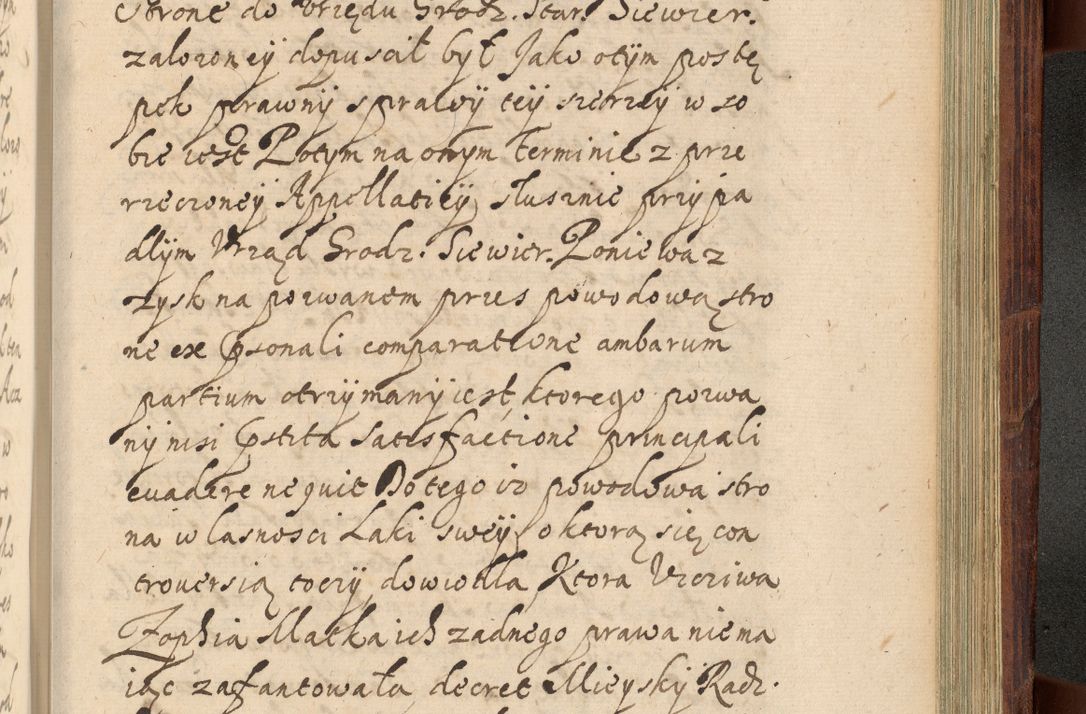 stronę do Vrzędu Grodz. Star. Siewier.
załozonęÿ dopuscił był Jako otÿm postę
pek prawnÿ sprawÿ teÿ szerzeÿ w so
bie iest Potym na onym terminie z prze
rzeczoneÿ Appellatieÿ słusznie przÿpa
dłÿm Vrząd Grodz. Siewier. Poniewaz
zysk na pozwanem przes powodową stro
nę ex psonali comparatione ambarum
partium otrzÿmanÿ iest, ktorego pozwa
nÿ nisi pstita satisfactione principali
euadere nequit Do tego iz powodowa stro
na własnosci Łaki sweÿ o ktorą się con
trouersia toczÿ, dowiodła Ktora Vrcziwa
Zophia Matka ich zadnego prawa niema
iąc zafantowała decret Mieÿskÿ Radz.